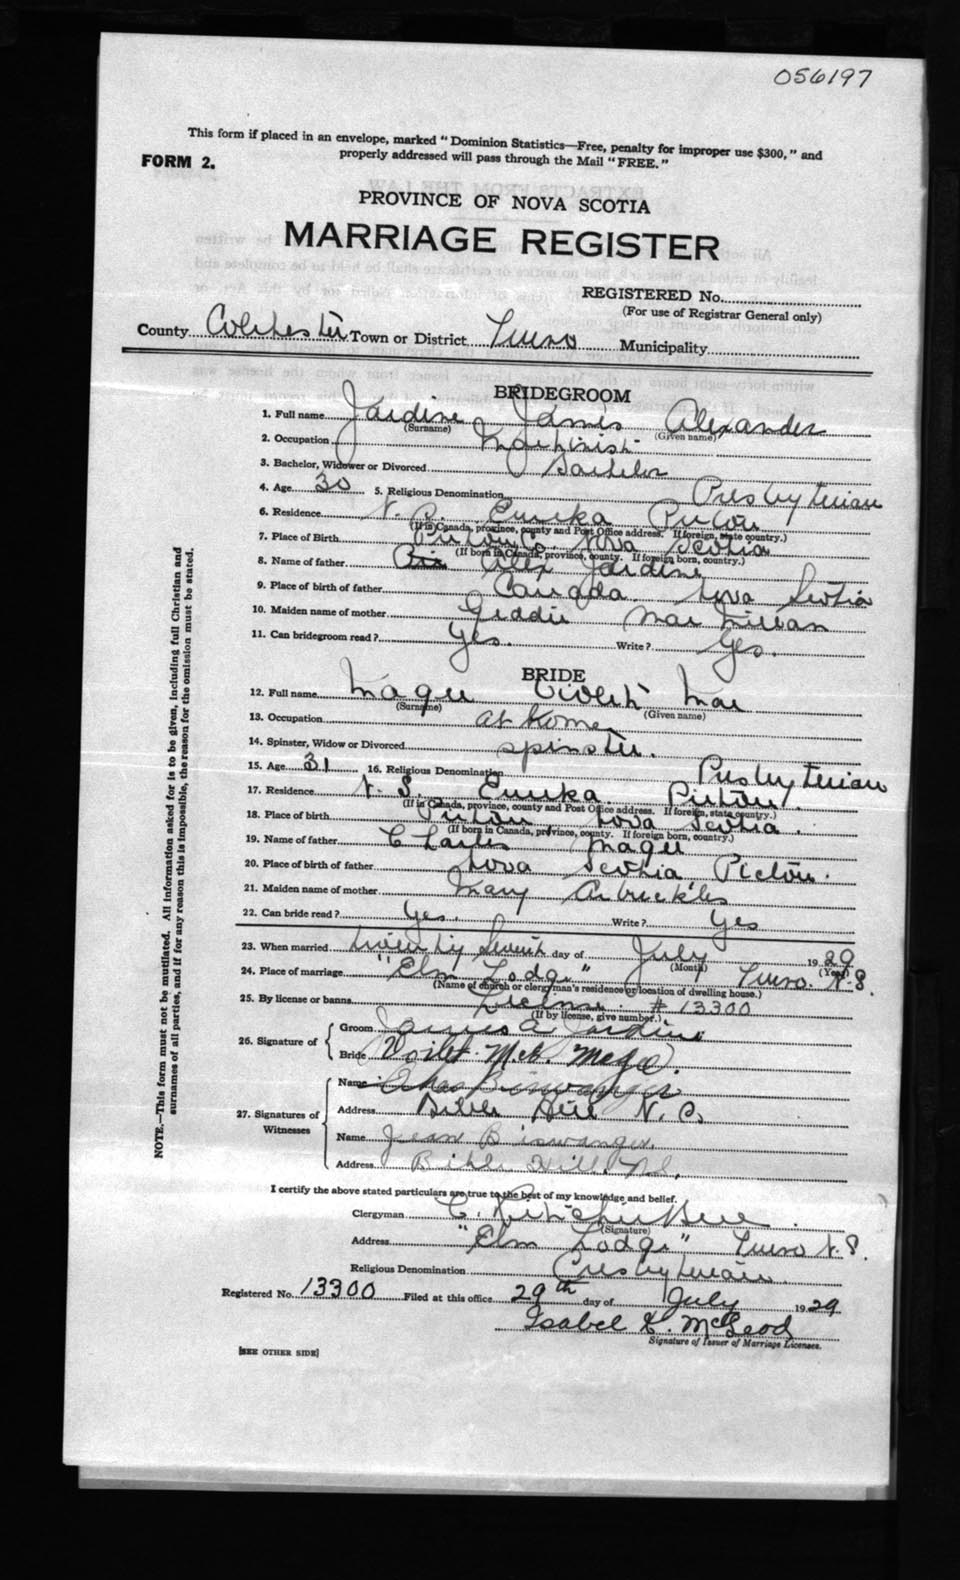 056197
This form if placed in an envelope, marked "Dominion Statistics—Free, penalty for improper use $300," and
properly addressed will pass through the Mail "FREE."
FORM 2.
PROVINCE OF NOVA SCOTIA
MARRIAGE REGISTER
REGISTERED No.
(For use of Registrar General only)
County Colchester Town or District Truro Municipality
BRIDEGROOM
1. Full name Jardine James Alexander
(Surname) (Given name)
2. Occupation Machinist
3. Bachelor, Widower or Divorced Bachelor
4. Age 30 5. Religious Denomination Presbyterian
6. Residence N. S. Eureka Pictou
(If in Canada, province, county and Post Office address. If foreign, state country.)
7. Place of Birth Pictou Co. Nova Scotia
(If born in Canada, province, county. If foreign born, country.)
8. Name of father Alex Jardine
9. Place of birth of father Canada Nova Scotia
10. Maiden name of mother Geddie MacMillan
11. Can bridegroom read? Yes. Write? Yes.
BRIDE
12. Full name Magee Violet Mae
(Surname) (Given name)
13. Occupation at home
14. Spinster, Widow or Divorced spinster.
15. Age 31 16. Religious Denomination Presbyterian
17. Residence N. S. Eureka. Pictou.
(If in Canada, province, county and Post Office address. If foreign, state country.)
18. Place of birth Pictou Nova Scotia.
(If born in Canada, province, county. If foreign born, country.)
19. Name of father Charles Magee
20. Place of birth of father Nova Scotia Pictou.
21. Maiden name of mother Mary Arbuckles
22. Can bride read? Yes. Write? Yes
23. When married twenty seventh day of July 1929
(Month) (Year)
24. Place of marriage "Elm Lodge" Truro. N.S.
(Name of church or clergyman's residence or location of dwelling house.)
25. By license or banns License. # 13300
(If by license, give number.)
26. Signature of
Groom James A Jardine
Bride M. Magee.
27. Signatures of
Witnesses
Name Biswanger
Address Bible Hill N. S.
Name Jean Biswanger
Address Bible Hill, N.S.
I certify the above stated particulars are true to the best of my knowledge and belief.
Clergyman C. Ritchie Bell.
(Signature)
Address "Elm Lodge" Truro N.S.
Religious Denomination Presbyterian.
Registered No. 13300 Filed at this office 29th day of July 1929
Isabel K. McLeod
Signature of Issuer of Marriage Licenses.
[SEE OTHER SIDE]
NOTE.—This form must not be mutilated. All information asked for is to be given, including full Christian and
surnames of all parties, and if for any reason this is impossible, the reason for the omission must be stated.